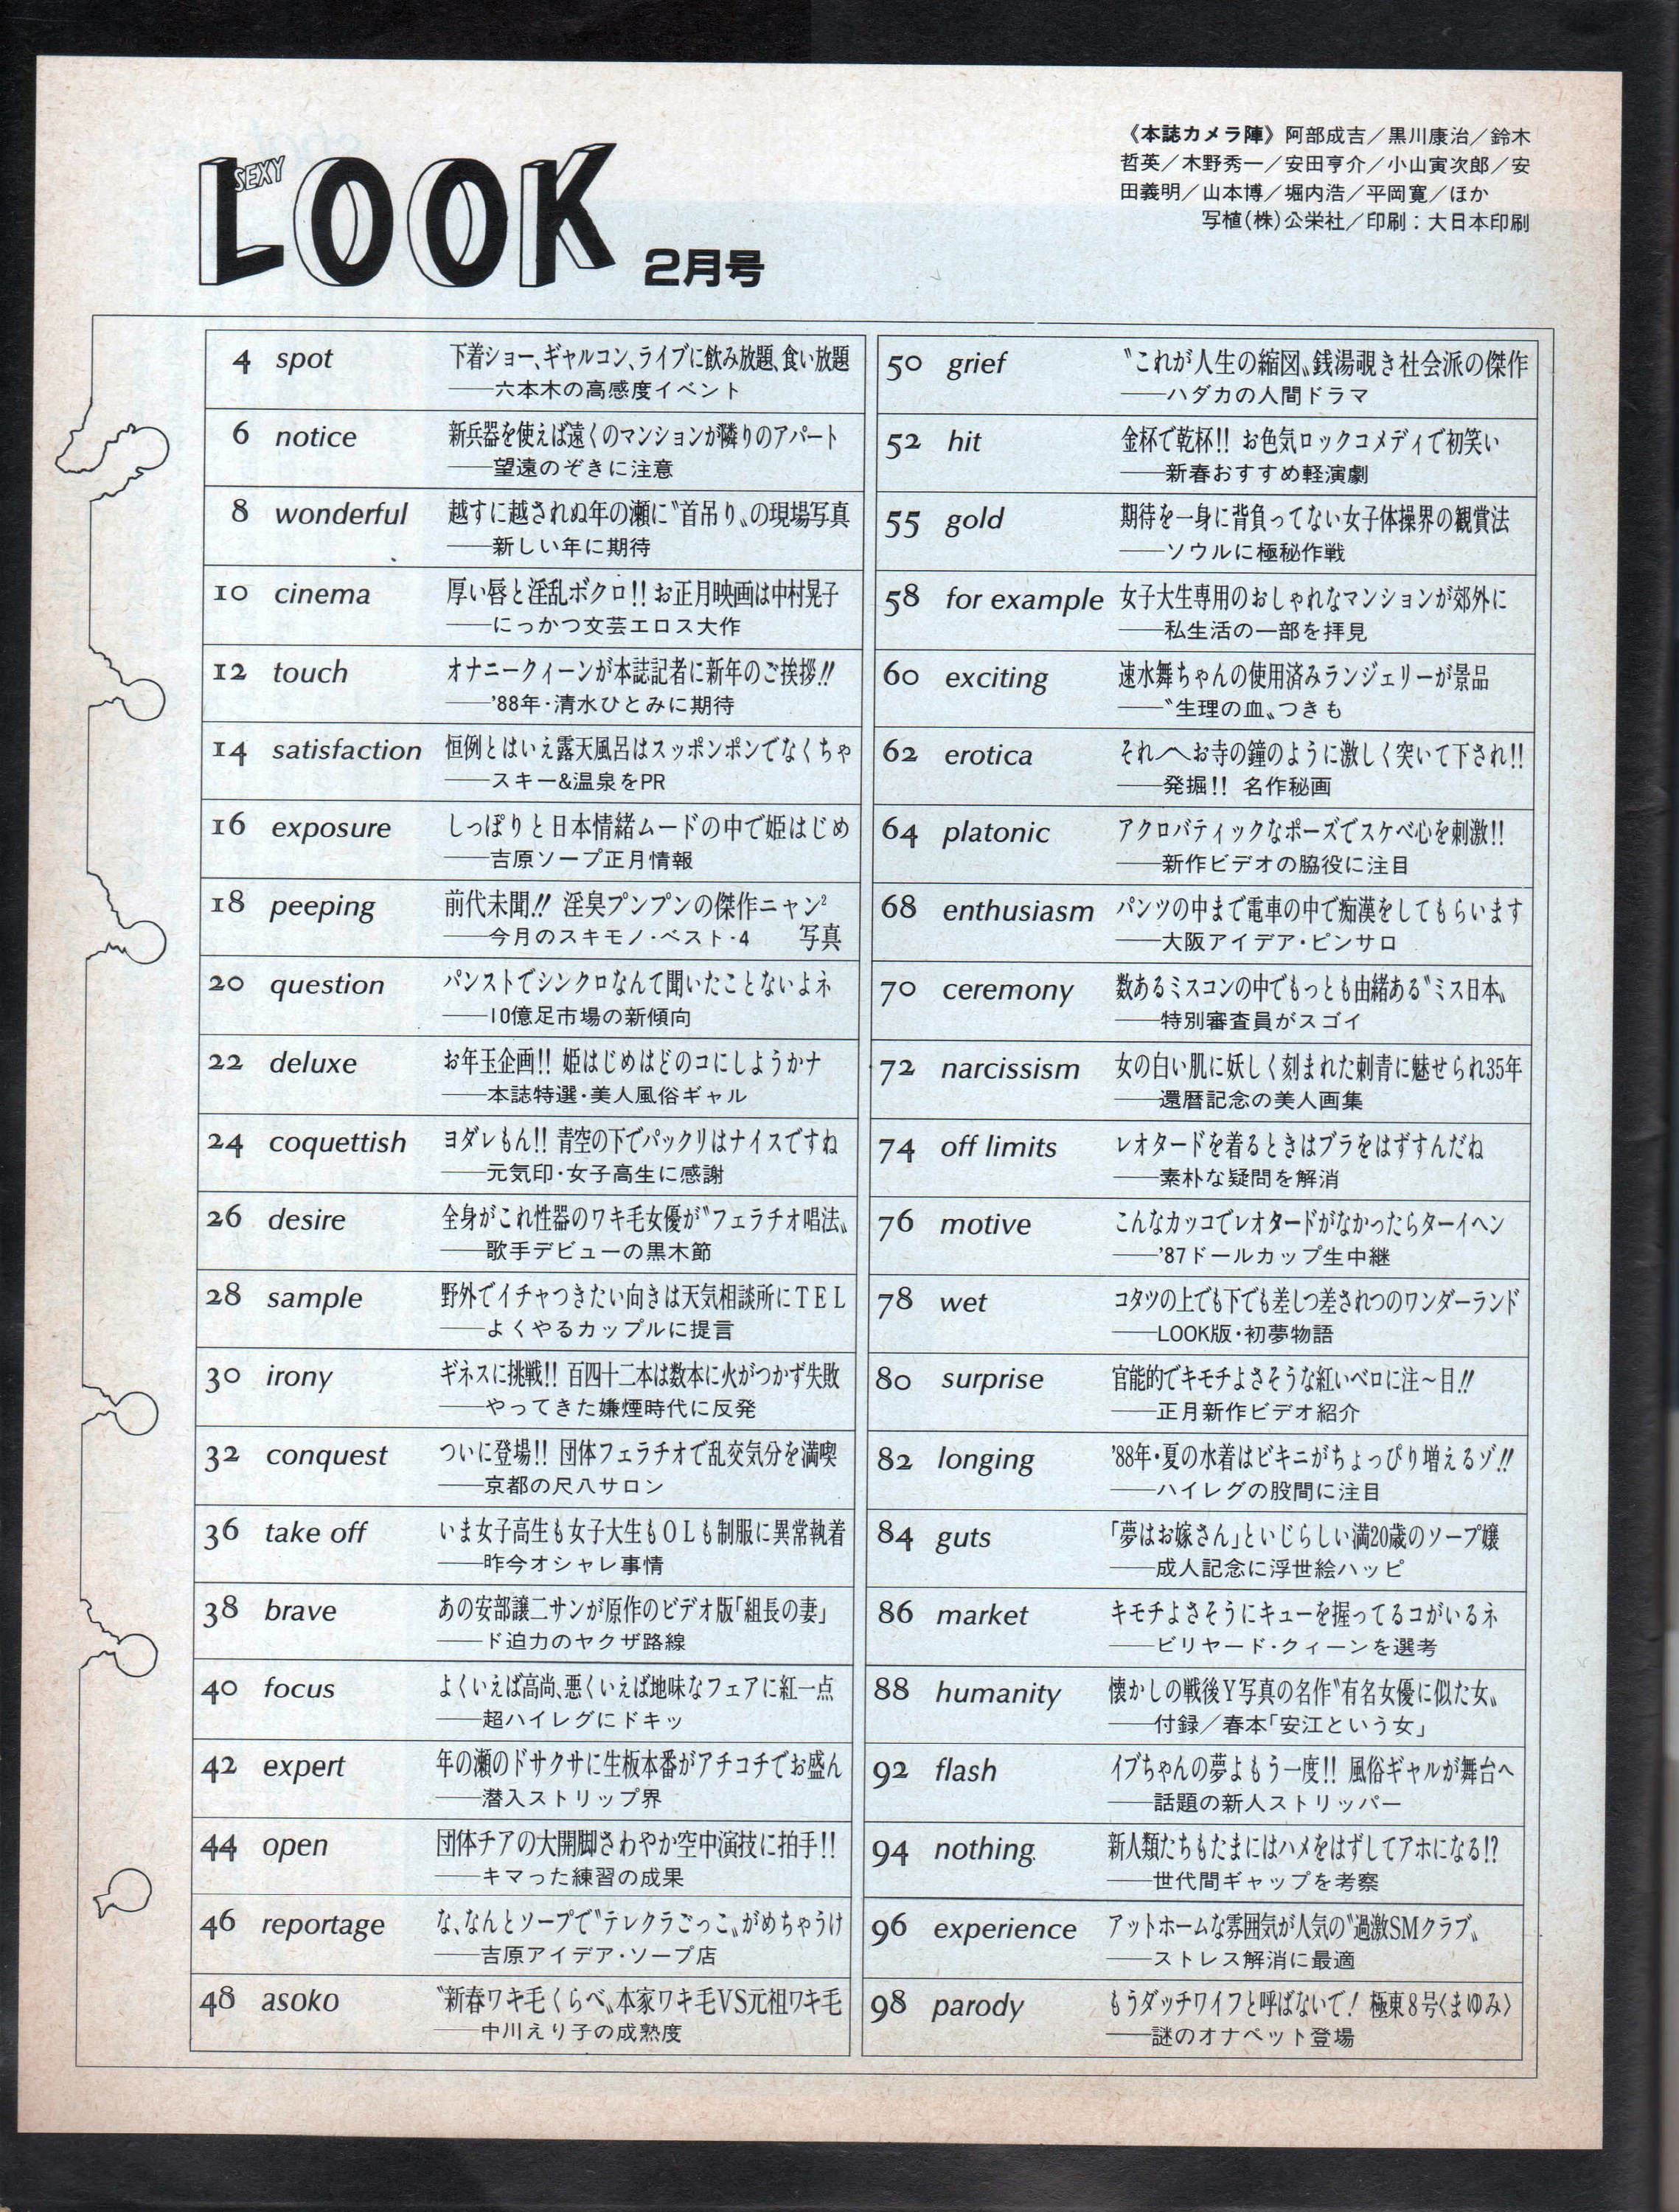 SEXY
LOOK 2月号
《本誌カメラ陣》阿部成吉／黒川康治／鈴木
哲英／木野秀一／安田亨介／小山寅次郎／安
田義明／山本博／堀内浩／平岡寛／ほか
写植(株)公栄社／印刷：大日本印刷
4 spot 下着ショー、ギャルコン、ライブに飲み放題、食い放題
──六本木の高感度イベント
6 notice 新兵器を使えば遠くのマンションが隣りのアパート
──望遠のぞきに注意
8 wonderful 越すに越されぬ年の瀬に〝首吊り〟の現場写真
──新しい年に期待
10 cinema 厚い唇と淫乱ボクロ!! お正月映画は中村晃子
──にっかつ文芸エロス大作
12 touch オナニークィーンが本誌記者に新年のご挨拶!!
──'88年・清水ひとみに期待
14 satisfaction 恒例とはいえ露天風呂はスッポンポンでなくちゃ
──スキー&温泉をPR
16 exposure しっぽりと日本情緒ムードの中で姫はじめ
──吉原ソープ正月情報
18 peeping 前代未聞!! 淫臭プンプンの傑作ニャン²
──今月のスキモノ・ベスト・4 写真
20 question パンストでシンクロなんて聞いたことないよネ
──10億足市場の新傾向
22 deluxe お年玉企画!! 姫はじめはどのコにしようかナ
──本誌特選・美人風俗ギャル
24 coquettish ヨダレもん!! 青空の下でパックリはナイスですね
──元気印・女子高生に感謝
26 desire 全身がこれ性器のワキ毛女優が〝フェラチオ唱法〟
──歌手デビューの黒木節
28 sample 野外でイチャつきたい向きは天気相談所にTEL
──よくやるカップルに提言
30 irony ギネスに挑戦!! 百四十二本は数本に火がつかず失敗
──やってきた嫌煙時代に反発
32 conquest ついに登場!! 団体フェラチオで乱交気分を満喫
──京都の尺八サロン
36 take off いま女子高生も女子大生もOLも制服に異常執着
──昨今オシャレ事情
38 brave あの安部譲二サンが原作のビデオ版「組長の妻」
──ド迫力のヤクザ路線
40 focus よくいえば高尚、悪くいえば地味なフェアに紅一点
──超ハイレグにドキッ
42 expert 年の瀬のドサクサに生板本番がアチコチでお盛ん
──潜入ストリップ界
44 open 団体チアの大開脚さわやか空中演技に拍手!!
──キマった練習の成果
46 reportage な、なんとソープで〝テレクラごっこ〟がめちゃうけ
──吉原アイデア・ソープ店
48 asoko 〝新春ワキ毛くらべ〟本家ワキ毛VS元祖ワキ毛
──中川えり子の成熟度
50 grief 〝これが人生の縮図〟銭湯覗き社会派の傑作
──ハダカの人間ドラマ
52 hit 金杯で乾杯!! お色気ロックコメディで初笑い
──新春おすすめ軽演劇
55 gold 期待を一身に背負ってない女子体操界の観賞法
──ソウルに極秘作戦
58 for example 女子大生専用のおしゃれなマンションが郊外に
──私生活の一部を拝見
60 exciting 速水舞ちゃんの使用済みランジェリーが景品
──〝生理の血〟つきも
62 erotica それ〳〵お寺の鐘のように激しく突いて下され!!
──発掘!! 名作秘画
64 platonic アクロバティックなポーズでスケベ心を刺激!!
──新作ビデオの脇役に注目
68 enthusiasm パンツの中まで電車の中で痴漢をしてもらいます
──大阪アイデア・ピンサロ
70 ceremony 数あるミスコンの中でもっとも由緒ある〝ミス日本〟
──特別審査員がスゴイ
72 narcissism 女の白い肌に妖しく刻まれた刺青に魅せられ35年
──還暦記念の美人画集
74 off limits レオタードを着るときはブラをはずすんだね
──素朴な疑問を解消
76 motive こんなカッコでレオタードがなかったらターイヘン
──'87ドールカップ生中継
78 wet コタツの上でも下でも差しつ差されつのワンダーランド
──LOOK版・初夢物語
80 surprise 官能的でキモチよさそうな紅いベロに注〜目!!
──正月新作ビデオ紹介
82 longing '88年・夏の水着はビキニがちょっぴり増えるゾ!!
──ハイレグの股間に注目
84 guts 「夢はお嫁さん」といじらしい満20歳のソープ嬢
──成人記念に浮世絵ハッピ
86 market キモチよさそうにキューを握ってるコがいるネ
──ビリヤード・クィーンを選考
88 humanity 懐かしの戦後Y写真の名作〝有名女優に似た女〟
──付録／春本「安江という女」
92 flash イブちゃんの夢よもう一度!! 風俗ギャルが舞台へ
──話題の新人ストリッパー
94 nothing 新人類たちもたまにはハメをはずしてアホになる!?
──世代間ギャップを考察
96 experience アットホームな雰囲気が人気の〝過激SMクラブ〟
──ストレス解消に最適
98 parody もうダッチワイフと呼ばないで! 極東8号〈まゆみ〉
──謎のオナペット登場